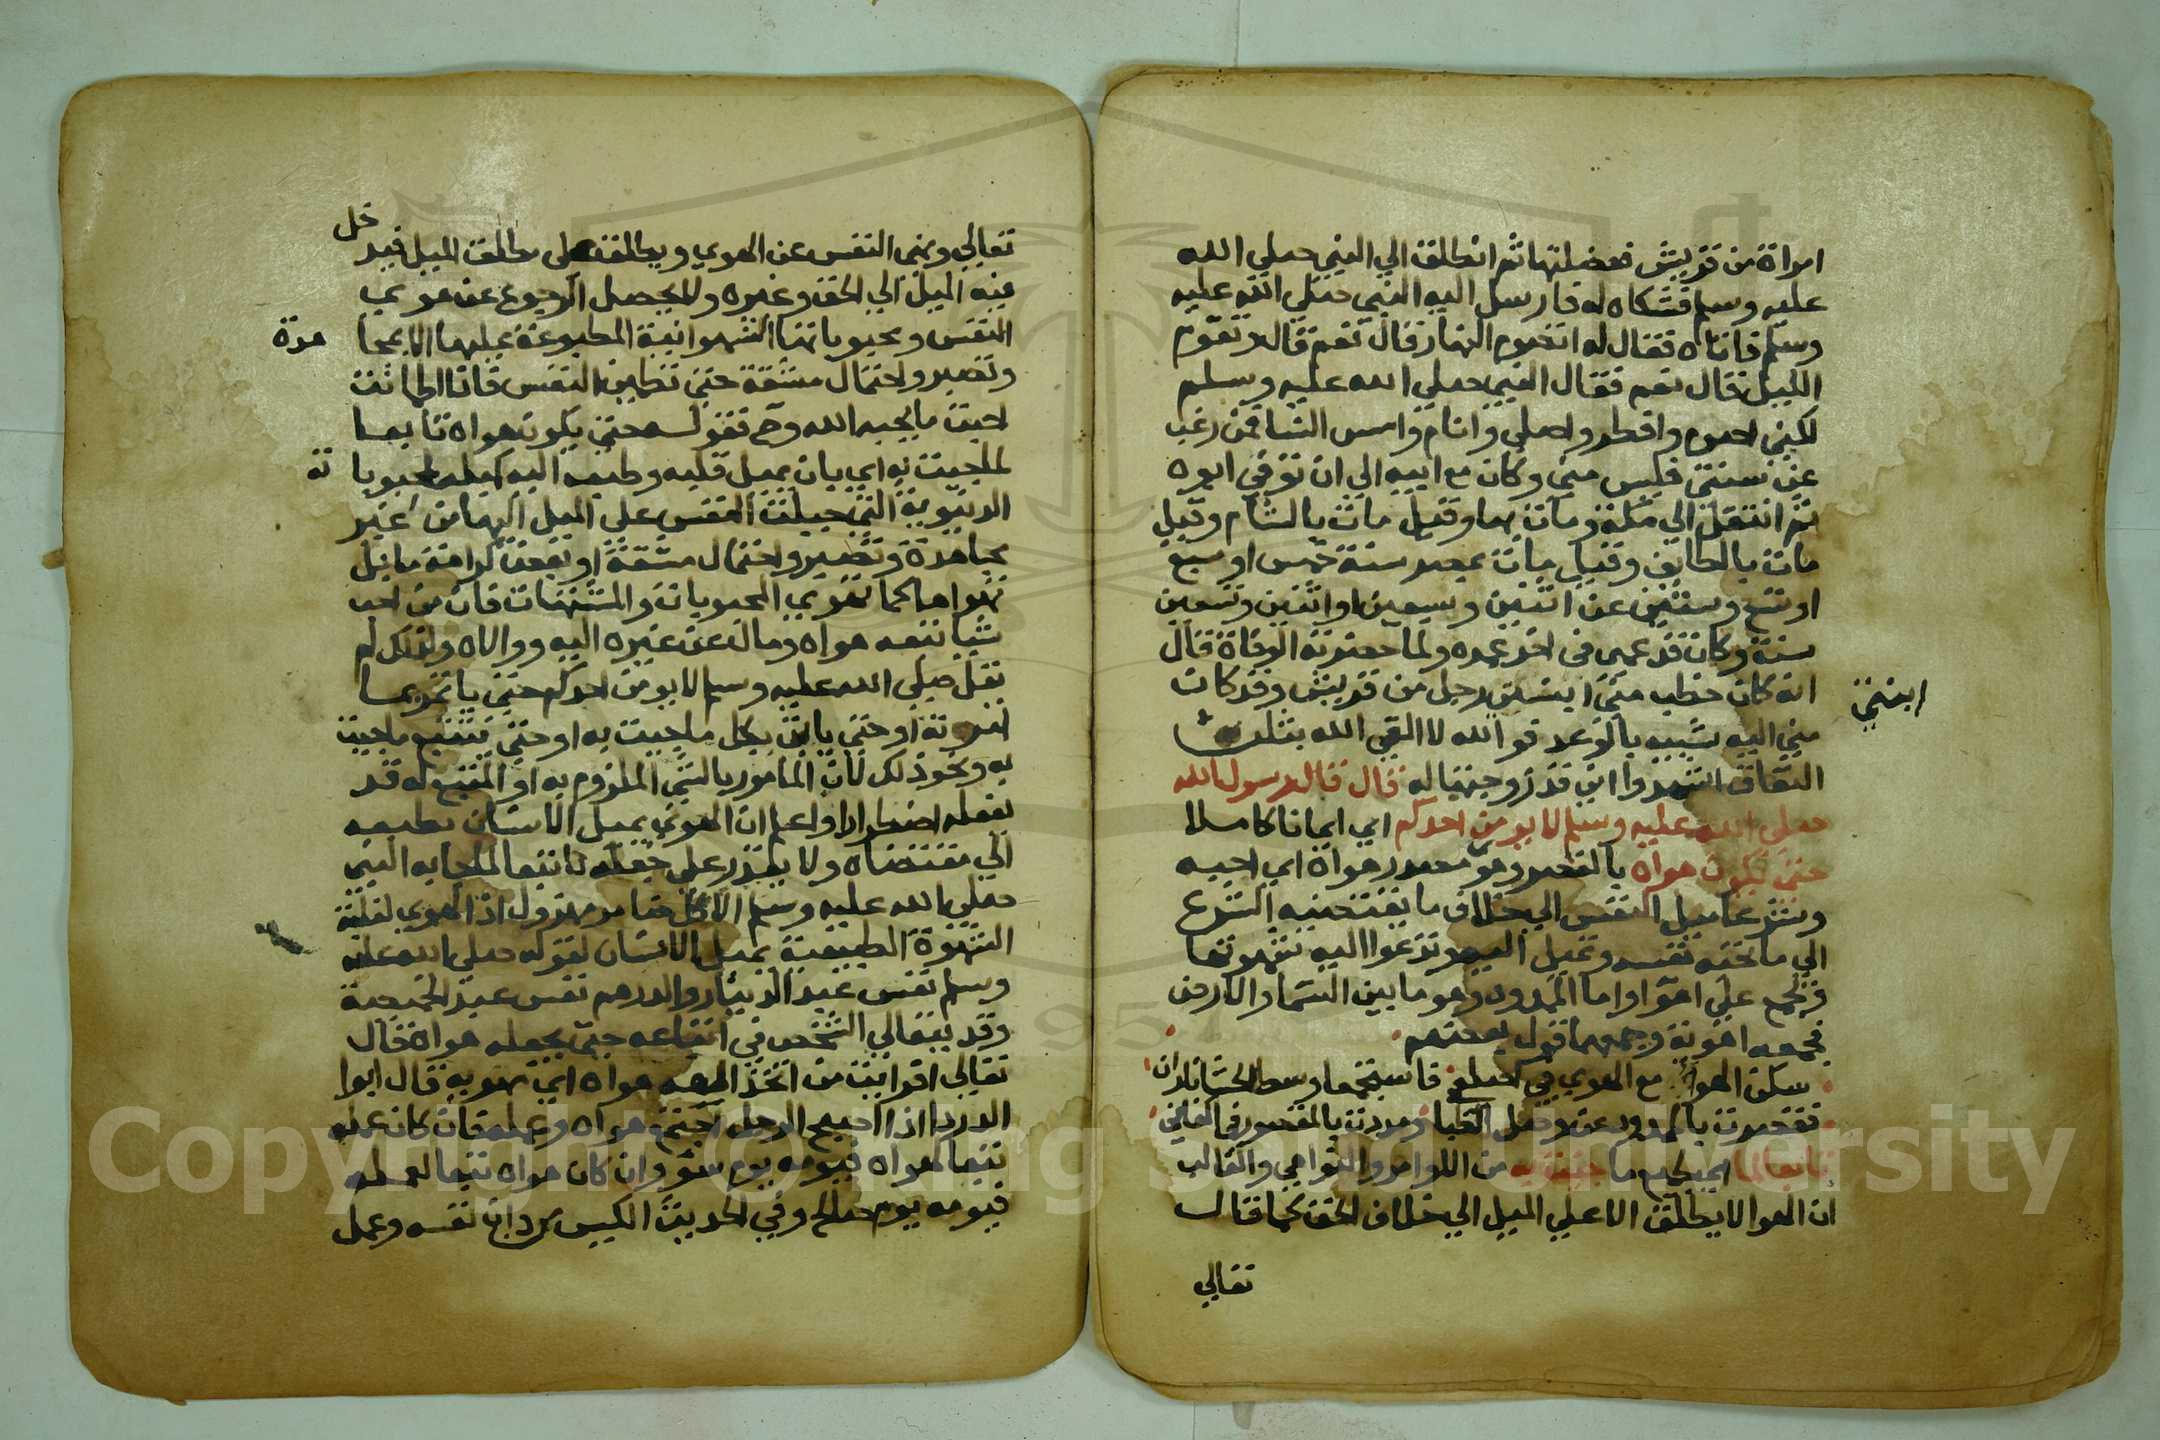 امراة من قريش فعضلتها ثم انطلق الي النبي صلي الله
عليه وسلم فشكاه له فارسل اليه النبي صلي الله عليه
وسلم فاتاه فقال له اتصوم النهار قال نعم قال وتقوم
الليل قال نعم فقال النبي صلي الله عليه وسلم
لكني اصوم وافطر واصلي وانام وامس النسا فمن رغب
عن سنتي فليس مني وكان مع ابيه الي ان توفي ابوه
ثم انتقل الي مكة ومات بها وقيل مات بالشام وقيل
مات بالطايف وقيل مات بمصر سنة خمس او سبع
او تسع وستين عن اثنين وسبعين او اثنين وتسعين
سنة وكان قد عمي في اخر عمره ولما حضرته الوفاة قال
انه كان خطب مني ابنتي رجل من قريش وقد كان
ابنتي
مني اليه شبيه بالوعد فوالله لا القي الله بثلث
النفاق اشهدوا اني قد زوجتها له قال قال رسول الله
صلي الله عليه وسلم لا يومن احدكم اي ايمانا كاملا
حتي يكون هواه بالقصر وهو مصدر هواه اي احبه
وشرعا ميل النفس الي خلاف ما يقتضيه الشرع
الي ما تحبه نفسه وتميل اليه وتدعوا اليه شهوتها
وجمع علي اهوا واما الممدود وهو ما بين السما والارض
فجمعه اهوية وجمعهما قول بعضهم
سكن الهوا مع الهوي في اضلعي فاستجمعا وسط الحشا ناران
فقصرت بالممدود عن وصل الظبا ومددت بالمقصور في اكفاني
تابعا لما جيت به من الاوامر والنواهي والغالب
ان الهوا لا يطلق الا علي الميل الي خلاف الحق كما قال
تعالي
تعالي ونهي النفس عن الهوي ويطلق علي مطلق الميل فيد
خل
فيه الميل الي الحق وغيره ولا يحصل الرجوع عن هوي
النفس ومحبوباتها الشهوانية المطبوعة عليها الا بمجا
هدة
وتصبر واحتمال مشقة حتي تطمين النفس فاذا اطمانت
احبت ما يحبه الله وح فقوله حتي يكون هواه تابعا
لما جيت به اي بان يميل قلبه وطبعه اليه كميله لمحبوبا
ته
الدنيوية التي جبلت النفس علي الميل اليها من غير
مجاهدة وتصبر واحتمال مشقة او بعض كراهة ما بل
تهواها كما تهوي المحبوبات والمشتهيات فان من احب
شيا تبعه هواه ومال عن غيره اليه ووالاه ولذلك لم
يقل صلي الله عليه وسلم لا يومن احدكم حتي ياتمر بما
امرته او حتي ياتي بكل ما جيت به او حتي يتبع ما جيت
به ونحو ذلك لان المامور بالشي الملزوم به او المتبع له قد
يفعله اضطرارا واعلم ان الهوي يميل الانسان بطبعه
الي مقتضاه ولا يقدر علي جعله تابعا لما جا به النبي
صلي الله عليه وسلم الا كل ضامر مهزول اذ الهوي لغلبة
الشهوة الطبيعية يميل الانسان لقوله صلي الله عليه
وسلم تعس عبد الدينار والدرهم تعس عبد الخميصة
وقد يتغالي الشخص في اتباعه حتي يجعله هواه قال
تعالي افرايت من اتخذ الهه هواه اي مهويه قال ابوا
الدردا اذا اصبح الرجل اجتمع هواه وعمله فان كان عمله
تبعا لهواه فيومه يوم سوء وان كان هواه تبعا لعمله
فيومه يوم صالح وفي الحديث الكيس من دان نفسه وعمل